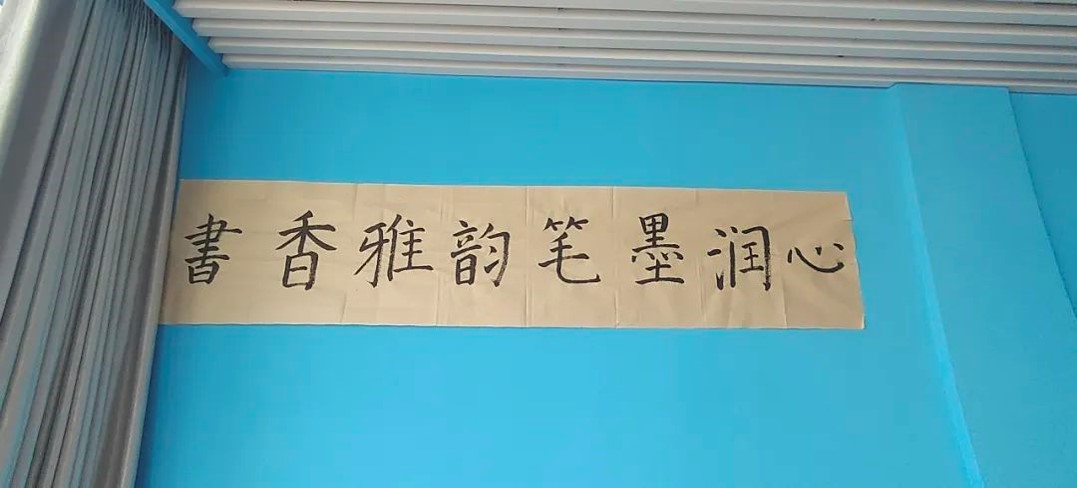 書香雅韵笔墨润心